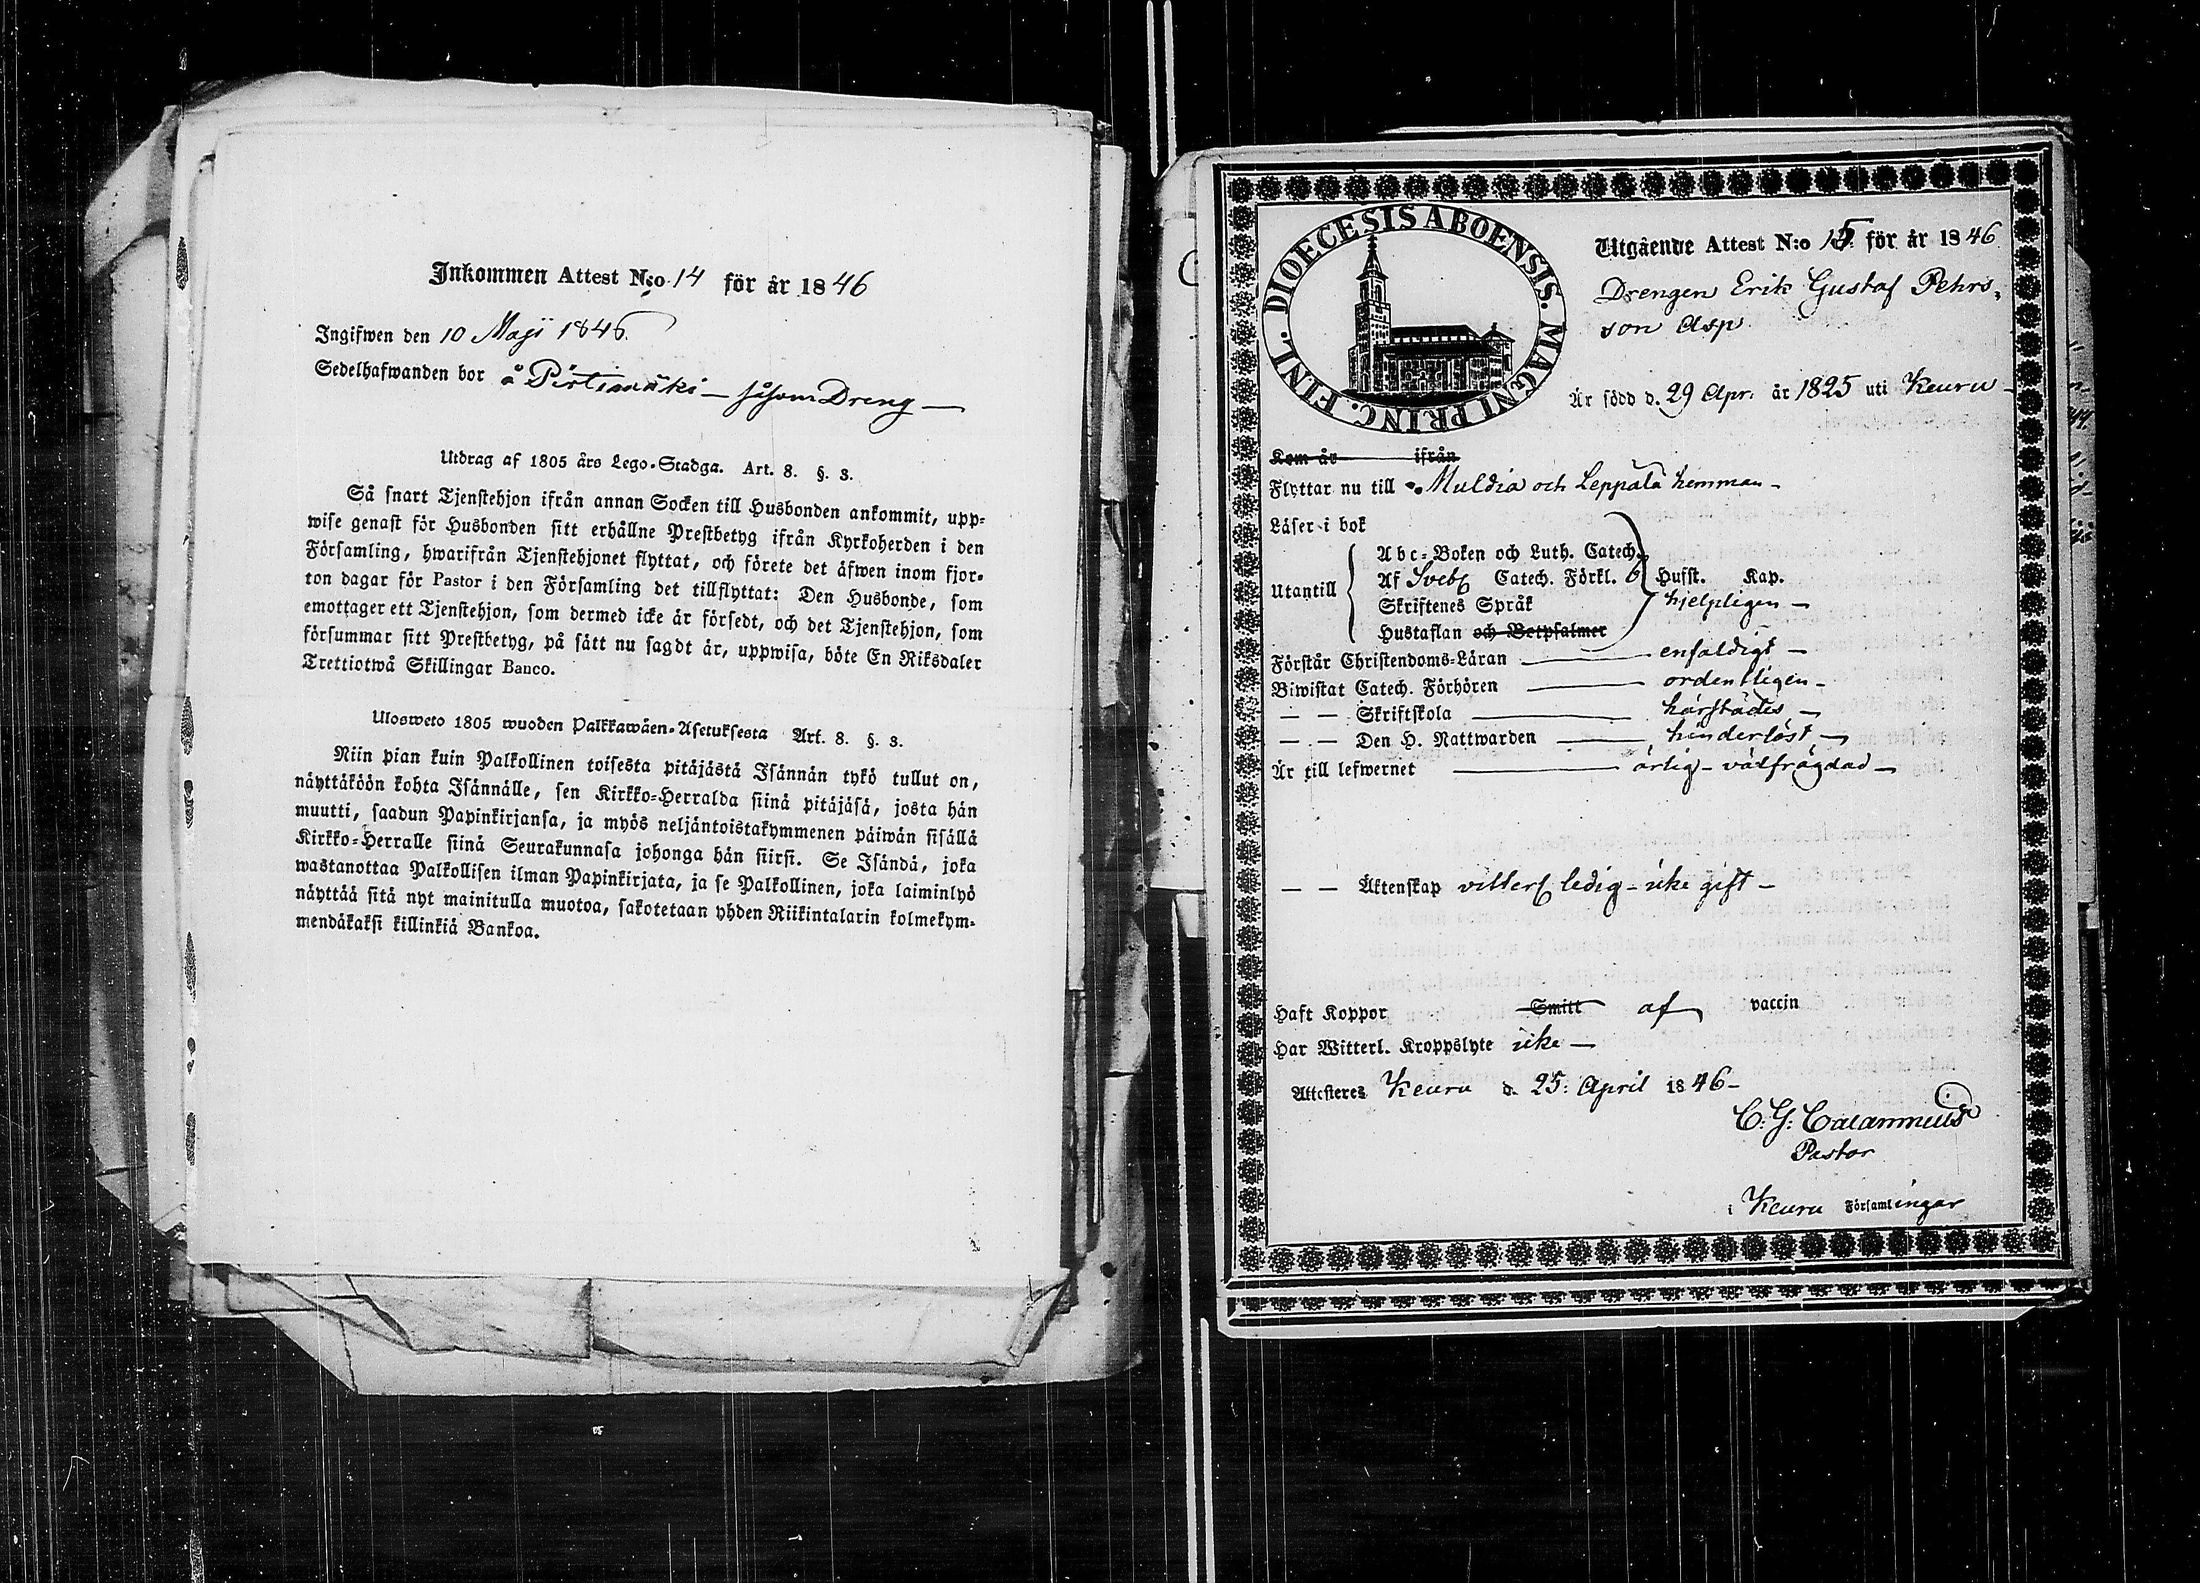 Inkommen Attest N:o 14 för år 1846
Ingifwen den 10 Maji 1846.
Sedelhafwanden bor å Pirtimäki — såsom Dreng —
Utdrag af 1805 års Lego-Stadga. Art. 8. §. 3.
Så snart Tjenstehjon ifrån annan Socken till Husbonden ankommit, upp-
wise genast för Husbonden sitt erhållne Prestbetyg ifrån Kyrkoherden i den
Församling, hwarifrån Tjenstehjonet flyttat, och förete det äfwen inom fjor-
ton dagar för Pastor i den Församling det tillflyttat: Den Husbonde, som
emottager ett Tjenstehjon, som dermed icke är försedt, och det Tjenstehjon, som
försummar sitt Prestbetyg, på sätt nu sagdt är, uppwisa, böte En Riksdaler
Trettiotwå Skillingar Banco.
Ulosweto 1805 wuoden Palkkawäen-Asetuksesta Art. 8. §. 3.
Niin pian kuin Palkollinen toisesta pitäjästä Isännän tykö tullut on,
näyttäköön kohta Isännälle, sen Kirkko-Herralda siinä pitäjäsä, josta hän
muutti, saadun Papinkirjansa, ja myös neljäntoistakymmenen päiwän sisällä
Kirkko-Herralle siinä Seurakunnasa johonga hän siirsi. Se Isändä, joka
wastanottaa Palkollisen ilman Papinkirjata, ja se Palkollinen, joka laiminlyö
näyttää sitä nyt mainitulla muotoa, sakotetaan yhden Riikintalarin kolmekym-
mendäkaksi killinkiä Bankoa.
DIOECESIS ABOENSIS. MAGNI PRINC. FINL.
Utgående Attest N:o 15. för år 1846
Drengen Erik Gustaf Pehrs-
son Asp
Är född d. 29 Apr. år 1825 uti Keuru —
Kom år ifrån
Flyttar nu till Muldia och Leppälä hemman —
Läser i bok
Abc-Boken och Luth. Catech.
Utantill Af Sveb. Catech. Förkl. 6 Hufst. Kap.
Skriftenes Språk hjelpligen —
Hustaflan och Botpsalmer
Förstår Christendoms-Läran — enfaldigt —
Biwistat Catech. Förhören — ordentligen —
— — Skriftskola — härstädes —
— — Den H. Nattwarden — hinderlöst —
Är till lefwernet — ärlig — välfrägdad —
— — Äktenskap vitterl. ledig — icke gift —
Haft Koppor Smitt af vaccin
Har Witterl. Kroppslyte icke —
Attesteres Keuru d. 25: April 1846 —
C. G. Calamnius
Pastor
i Keuru Församlingar